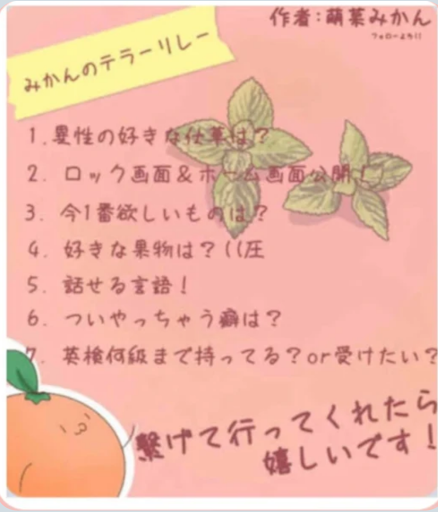 作者:萌菜みかん
フォローよろ!!
みかんのテラーリレー
1. 異性の好きな仕草は?
2. ロック画面&ホーム画面公開!」
3. 今1番欲しいものは?
4. 好きな果物は?((圧
5. 話せる言語!
6. ついやっちゃう癖は?
7. 英検何級まで持ってる?or受けたい?
繋げて行ってくれたら
嬉しいです!